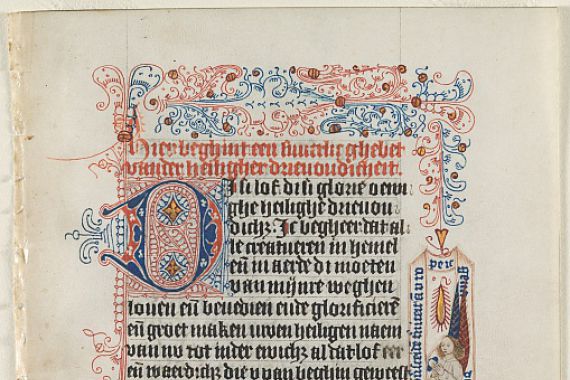 Hier beghint een suuerlic ghebet
vander heiligher drieuoudicheit.
Di si lof di si glorie o eewi
ghe heilighe drieuou
dichz. Ic begheer dat al
le creatueren in hemel
en̄ in aerde di moeten
van mijnre weghen
louen en̄ benedien ende glorificierē
en̄ groet maken uwen heiligen naem
van nv tot inder ewichz al dat lof
en̄ waerdichz die v van beghin geweest